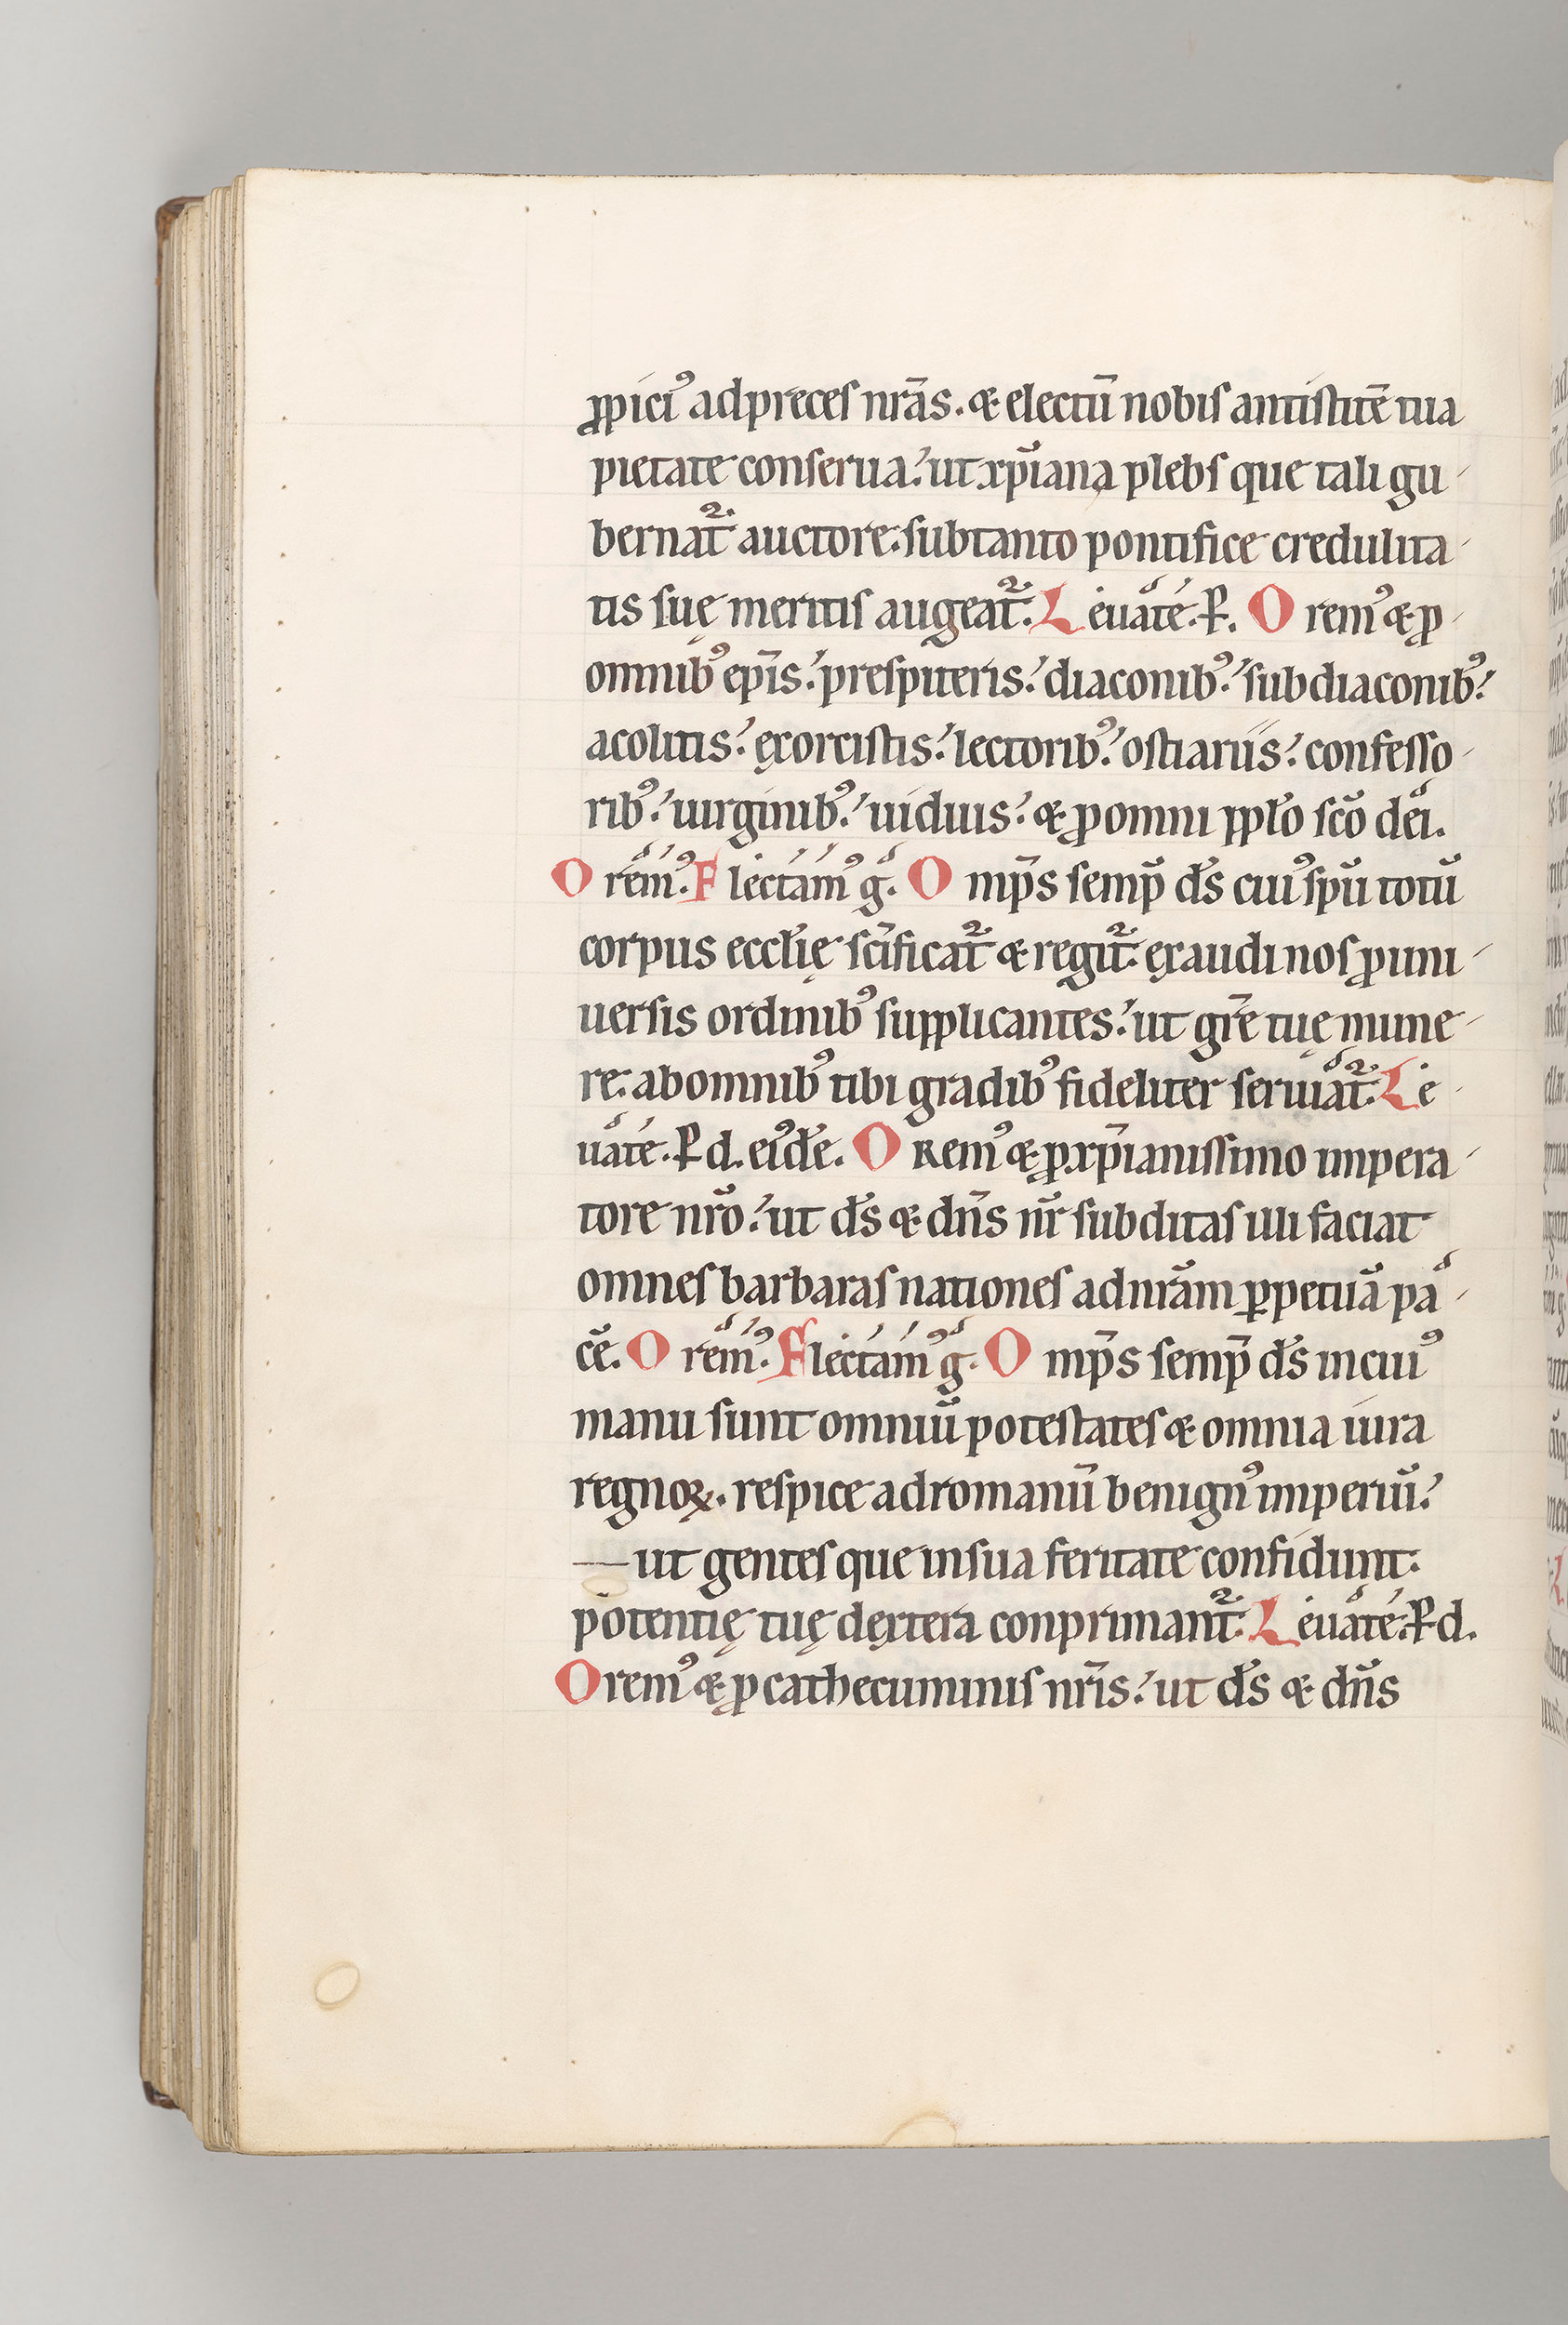 ꝓpiciꝰ ad preces nr̄as. & electū nobis antistitē tua
pietate conserua: ut xp̄iana plebs que tali gu-
bernat᷑ auctore: sub tanto pontifice credulita-
tis suę meritis augeat᷑. Leuate. P. Oremꝰ & ꝓ
omnibꝰ ep̄is: prespiteris: diaconibꝰ: subdiaconibꝰ:
acolitis: exorcistis: lectoribꝰ: ostiariis: confesso-
ribꝰ: uirginibꝰ: uiduis: & ꝓ omni ppło scō dei.
Oremꝰ. Flectamꝰ g. Omp̄s semp̄ ds̄ cuiꝰ spū totū
corpus eccłię scīficat᷑ & regit᷑: exaudi nos ꝓ uni-
uersis ordinibꝰ supplicantes: ut gr̄e tuę mune-
re: ab omnibꝰ tibi gradibꝰ fideliter seruiat᷑. Le-
uate. P d. eiꝰdē. Oremꝰ & ꝓ xp̄ianissimo impera-
tore nr̄o: ut ds̄ & dn̄s nr̄ subditas illi faciat
omnes barbaras nationes ad nr̄am ꝑpetuā pa-
cē. Oremꝰ. Flectamꝰ g. Omp̄s semp̄ ds̄ in cuiꝰ
manu sunt omniū potestates & omnia iura
regnoꝝ. respice ad romanū benignꝰ imperiū:
— ut gentes que in sua feritate confidunt:
potentię tuę dextera conprimant᷑. Leuate. P d.
Oremꝰ & ꝓ cathecuminis nr̄is: ut ds̄ & dn̄s